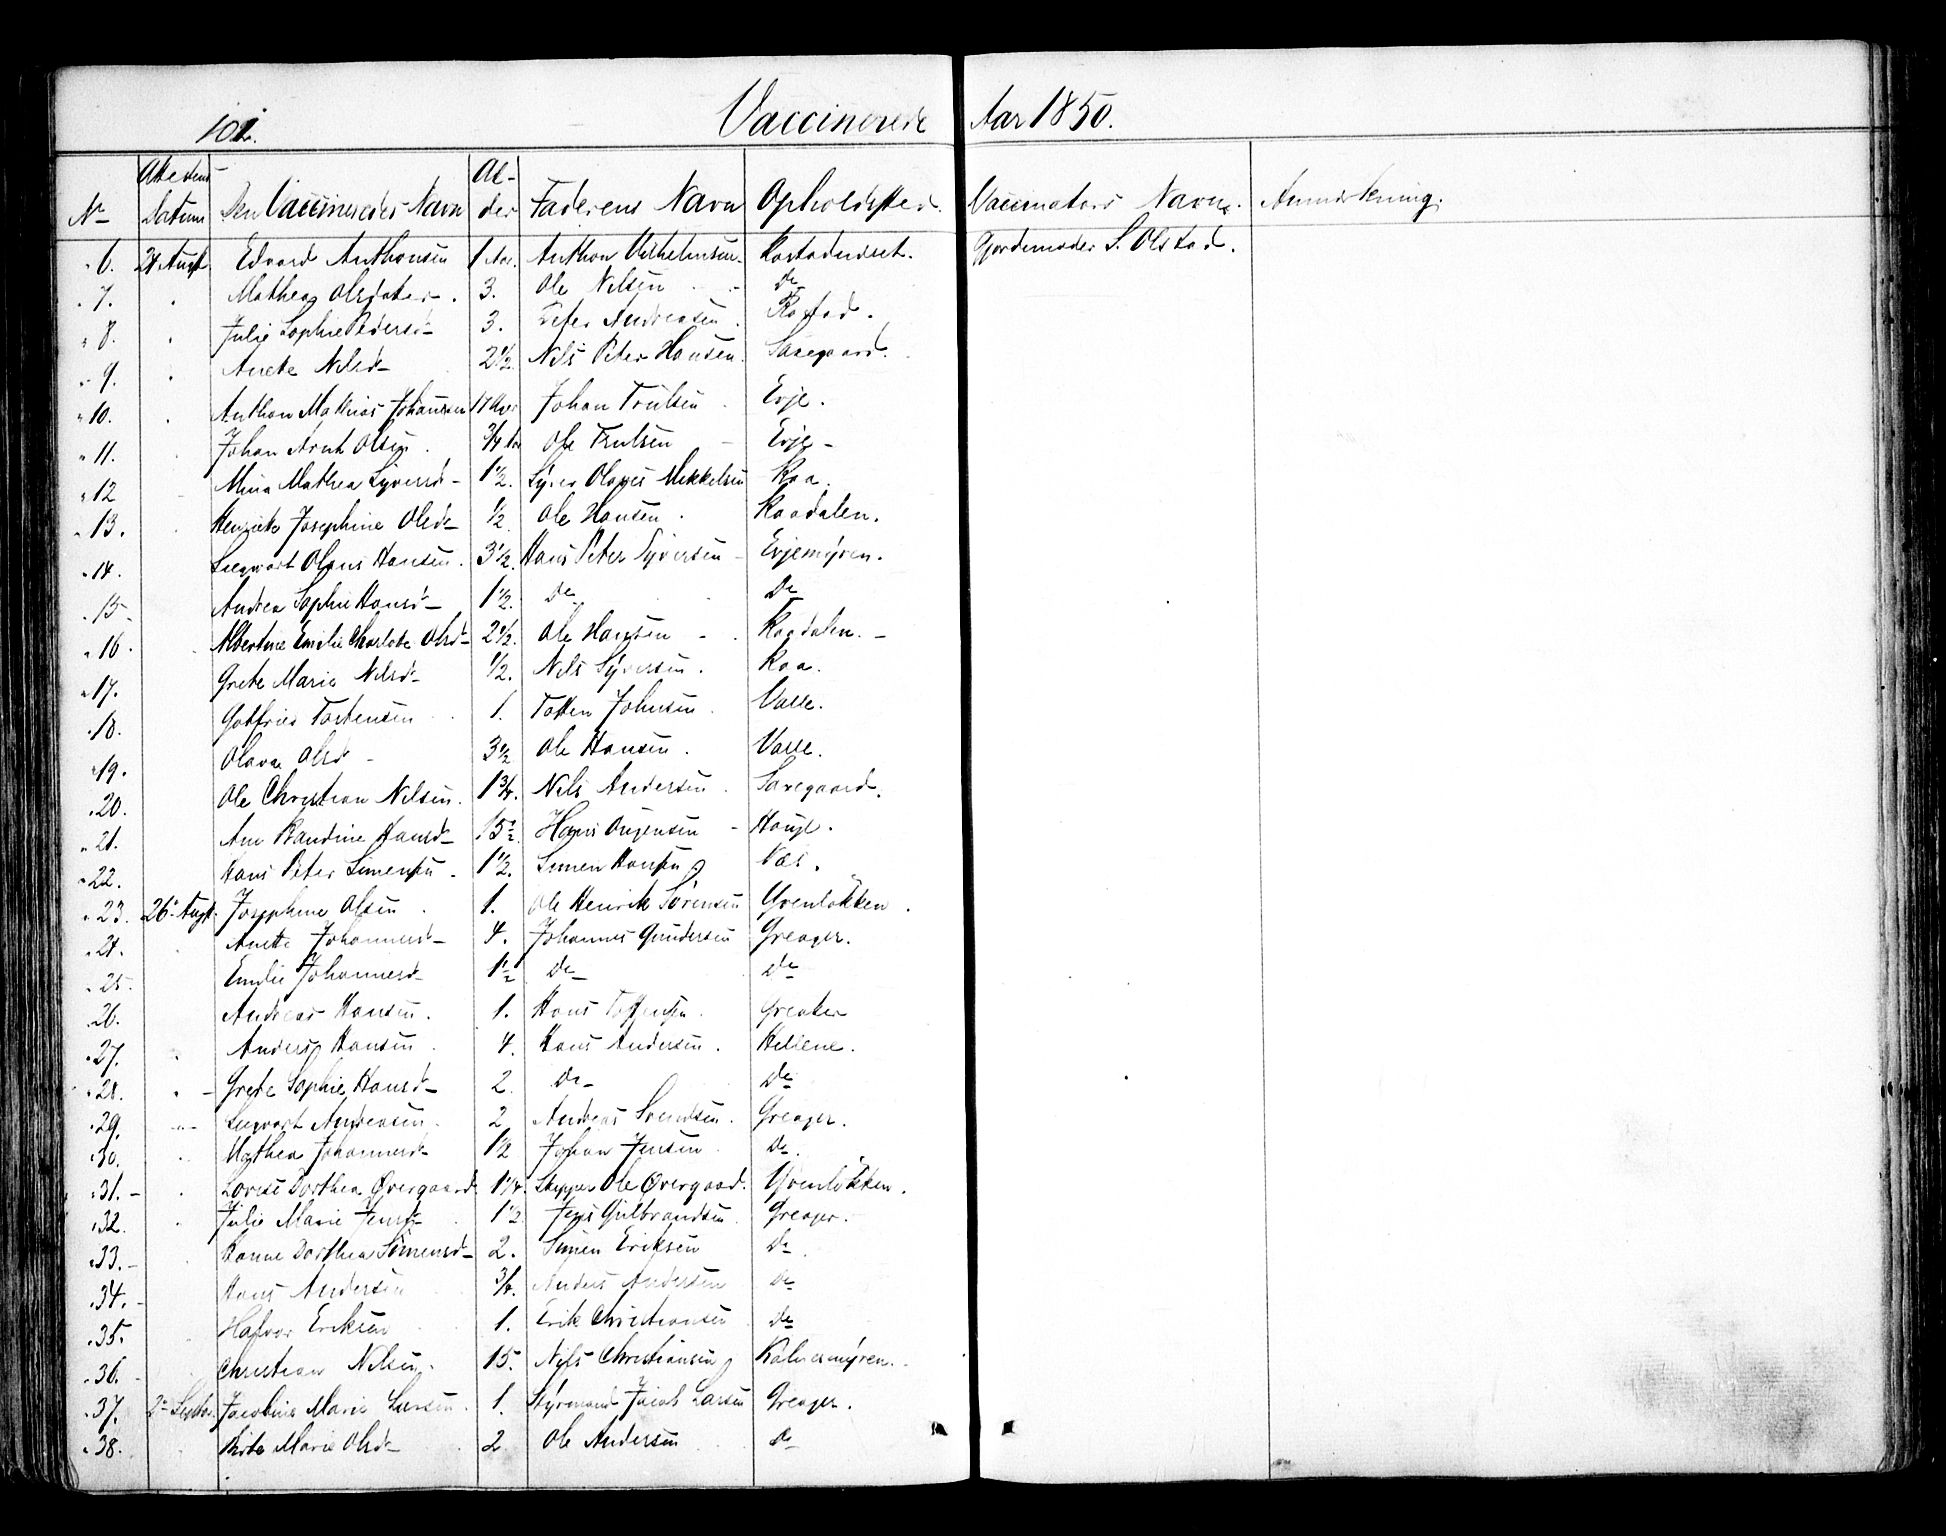 101.
Vaccinerede Aar 1850.
No Attestens Datum Den Vaccineredes Navn Alder Faderens Navn Opholdssted. Vaccinators Navn. Anmærkning.
6. 21 Augst. Edvard Anthonsen 1 Aar. Anthon Vilhelmsen. Gjordemoder S. Olstad.
7. Mathea Olsdater. 3. Ole Nilsen do
8. Julie Sophie Pedersd 3. Peter Andreasen. Rostad.
9. Anete Nilsd 2 1/2. Nils Peter Hansen.
10. Anthon Mathias Johansen 17 Johan Trulsen Evje.
11. Johan Arnt Olsen. 3/4 Aar Ole Trulsen Evje
12 Mina Mathea Syversd 1 1/2. Syver Olaves Mikkelsen Raa.
13. Henriete Josephine Olsd 1/2 Ole Hansen. Raadalen.
14. Siegwart Olaus Hansen. 3 1/2. Hans Peter Syversen Evjemÿren.
15 Andrea Sophie Hansd 1 1/2. do do
16. Albertine Emilie Charlote Olsd 2 1/2. Ole Hansen Raadalen.
17. Grete Marie Nilsd 1/2. Nils Sÿversen. Raa.
18. Gotfried Tostensen 1. Tosten Johnsen. Valle.
19. Olava Olsd 3 1/2 Ole Hansen. Valle.
20. Ole Christian Nilsen. 1 3/4. Nils Andersen.
21. Ane Randine Hansd 15 1/2 Hans Hauge.
22. Hans Peter Simensen. 1 1/2. Simen Hansen Næs.
23. 26 Augst. Josephine Olsen 1. Ole Henrik Sørensen Yvenløkken.
24. Anette Johannesd 4. Johannes Gundersen Greager.
25. Emilie Johannesd 1 1/2 do do
26. Andreas Hansen. 1. Hans Greaker
27. Anders Hansen 4. Hans Andersen. Hellene.
28. Grete Sophie Hansd 2. do do
29. Siegvart Andreasen. 2 Andreas Svendsen. Greager.
30. Mathea Johannesd 1 1/2 Johan Jensen do.
31. Lovise Dorthea Øvergaard 1 1/4. Skipper Ole Øvergaard. Yvenløkken.
32. Julie Marie Jensd 1 1/2 Jens Gulbrandsen Greager.
33. Hanne Dorthea Simensd 2. Simen Eriksen do
34. Hans Andersen 3/4. Anders Andersen do
35. Halvor Eriksen 1. Erik Christiansen do
36. Christian Nilsen. 15. Nils Christiansen Kalnesmÿren.
37. 2 Septbr. Jacobine Marie Larsen. 1. Stÿrmand Jacob Larsen Greager.
38. Marie Olsd 2. Ole Andersen do